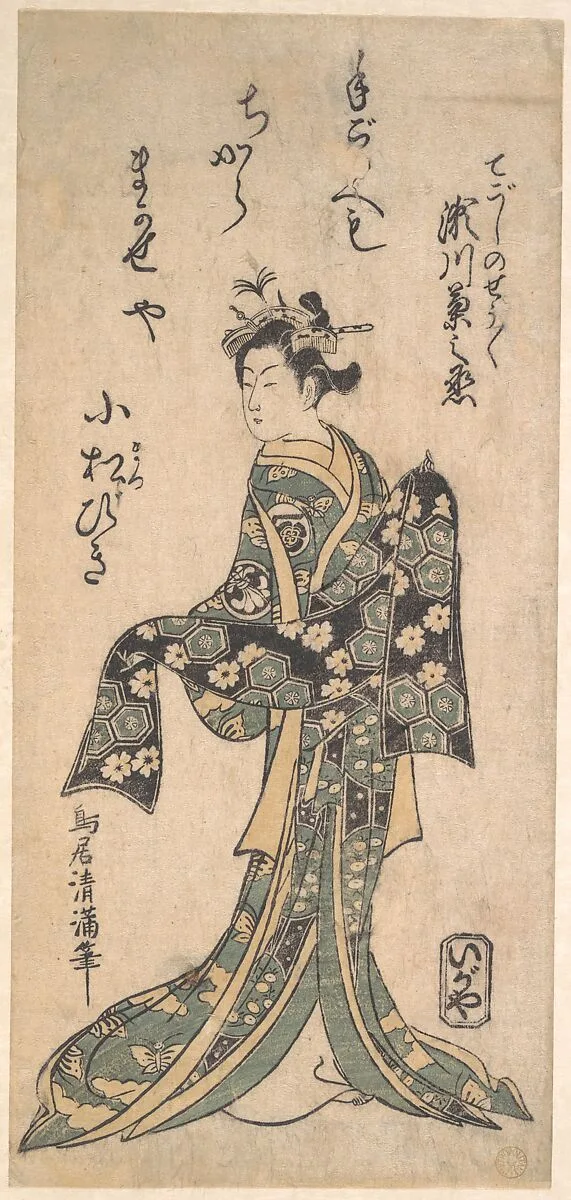 てごしのせうく
瀬川菊之丞
手ごしへも
ちから
まかせや
小松びき
まつ
鳥居清満筆
いがや